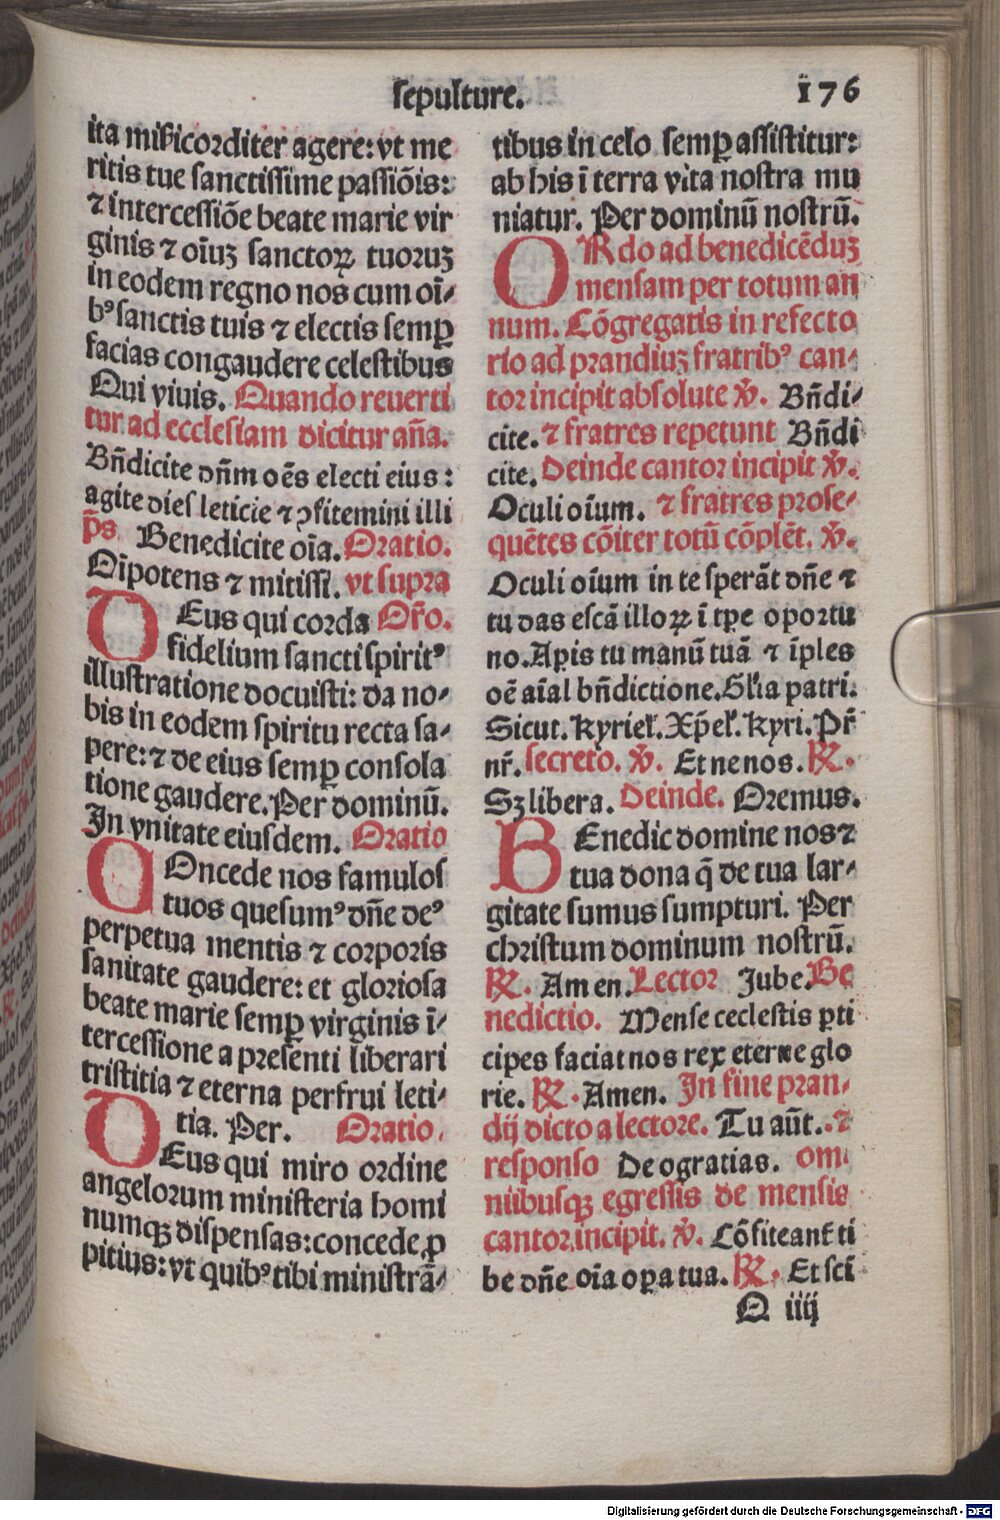 sepulture.
176
ita mĩcorditer agere: vt me
ritis tue sanctissime passiõis:
⁊ intercessiõe beate marie vir
ginis ⁊ oĩuꝫ sanctoꝝ tuoruꝫ
in eodem regno nos cum oĩ⸗
bꝰ sanctis tuis ⁊ electis semꝑ
facias congaudere celestibus
Qui viuis. Quando reuerti
tur ad ecclesiam dicitur aña.
Bñdicite dñm oẽs electi eius:
agite dies leticie ⁊ ꝯfitemini illi
p̃s. Benedicite oĩa. Oratio.
Oĩpotens ⁊ mitissi. vt supra
DEus qui corda Or̃o.
fidelium sancti spiritꝰ
illustratione docuisti: da no⸗
bis in eodem spiritu recta sa⸗
pere: ⁊ de eius semꝑ consola
tione gaudere. Per dominũ.
In vnitate eiusdem. Oratio
COncede nos famulos
tuos quesumꝰ dñe deꝰ
perpetua mentis ⁊ corporis
sanitate gaudere: et gloriosa
beate marie semꝑ virginis ĩ⸗
tercessione a presenti liberari
tristitia ⁊ eterna perfrui leti⸗
tia. Per. Oratio.
DEus qui miro ordine
angelorum ministeria homi
numqꝫ dispensas: concede ꝓ
pitius: vt quibꝰ tibi ministrã⸗
tibus in celo semꝑ assistitur:
ab his ĩ terra vita nostra mu
niatur. Per dominũ nostrũ.
ORdo ad benedicẽduꝫ
mensam per totum an
num. Cõgregatis in refecto
rio ad prandiuꝫ fratribꝰ can⸗
tor incipit absolute ℣. Bñdi⸗
cite. ⁊ fratres repetunt Bñdi
cite. Deinde cantor incipit ℣.
Oculi oĩum. ⁊ fratres prose⸗
quẽtes cõiter totũ cõplẽt. ℣.
Oculi oĩum in te sperãt dñe ⁊
tu das escã illoꝝ ĩ tꝑe oportu
no. Aꝑis tu manũ tuã ⁊ ĩples
oẽ aĩal bñdictione. Gľia patri.
Sicut. Kyrieľ. Xp̃eľ. Kyri. Pr̃
nr̃. secreto. ℣. Et ne nos. ℟.
Sꝫ libera. Deinde. Oremus.
BEnedic domine nos ⁊
tua dona q̃ de tua lar⸗
gitate sumus sumpturi. Per
christum dominum nostrũ.
℟. Amen. Lector Jube. Be
nedictio. Mense ceclestis ꝑti
cipes faciat nos rex eterne glo
rie. ℟. Amen. In fine pran⸗
dij dicto a lectore. Tu aũt. ⁊
responso Deo gratias. om⸗
nibusqꝫ egressis de mensis
cantor incipit. ℣. Cõfiteant̃ ti
be dñe oĩa oꝑa tua. ℟. Et scĩ
Q iiij
Digitalisierung gefördert durch die Deutsche Forschungsgemeinschaft - DFG